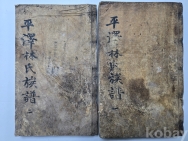 平澤林氏族譜 一
平澤林氏族譜 二
kobay